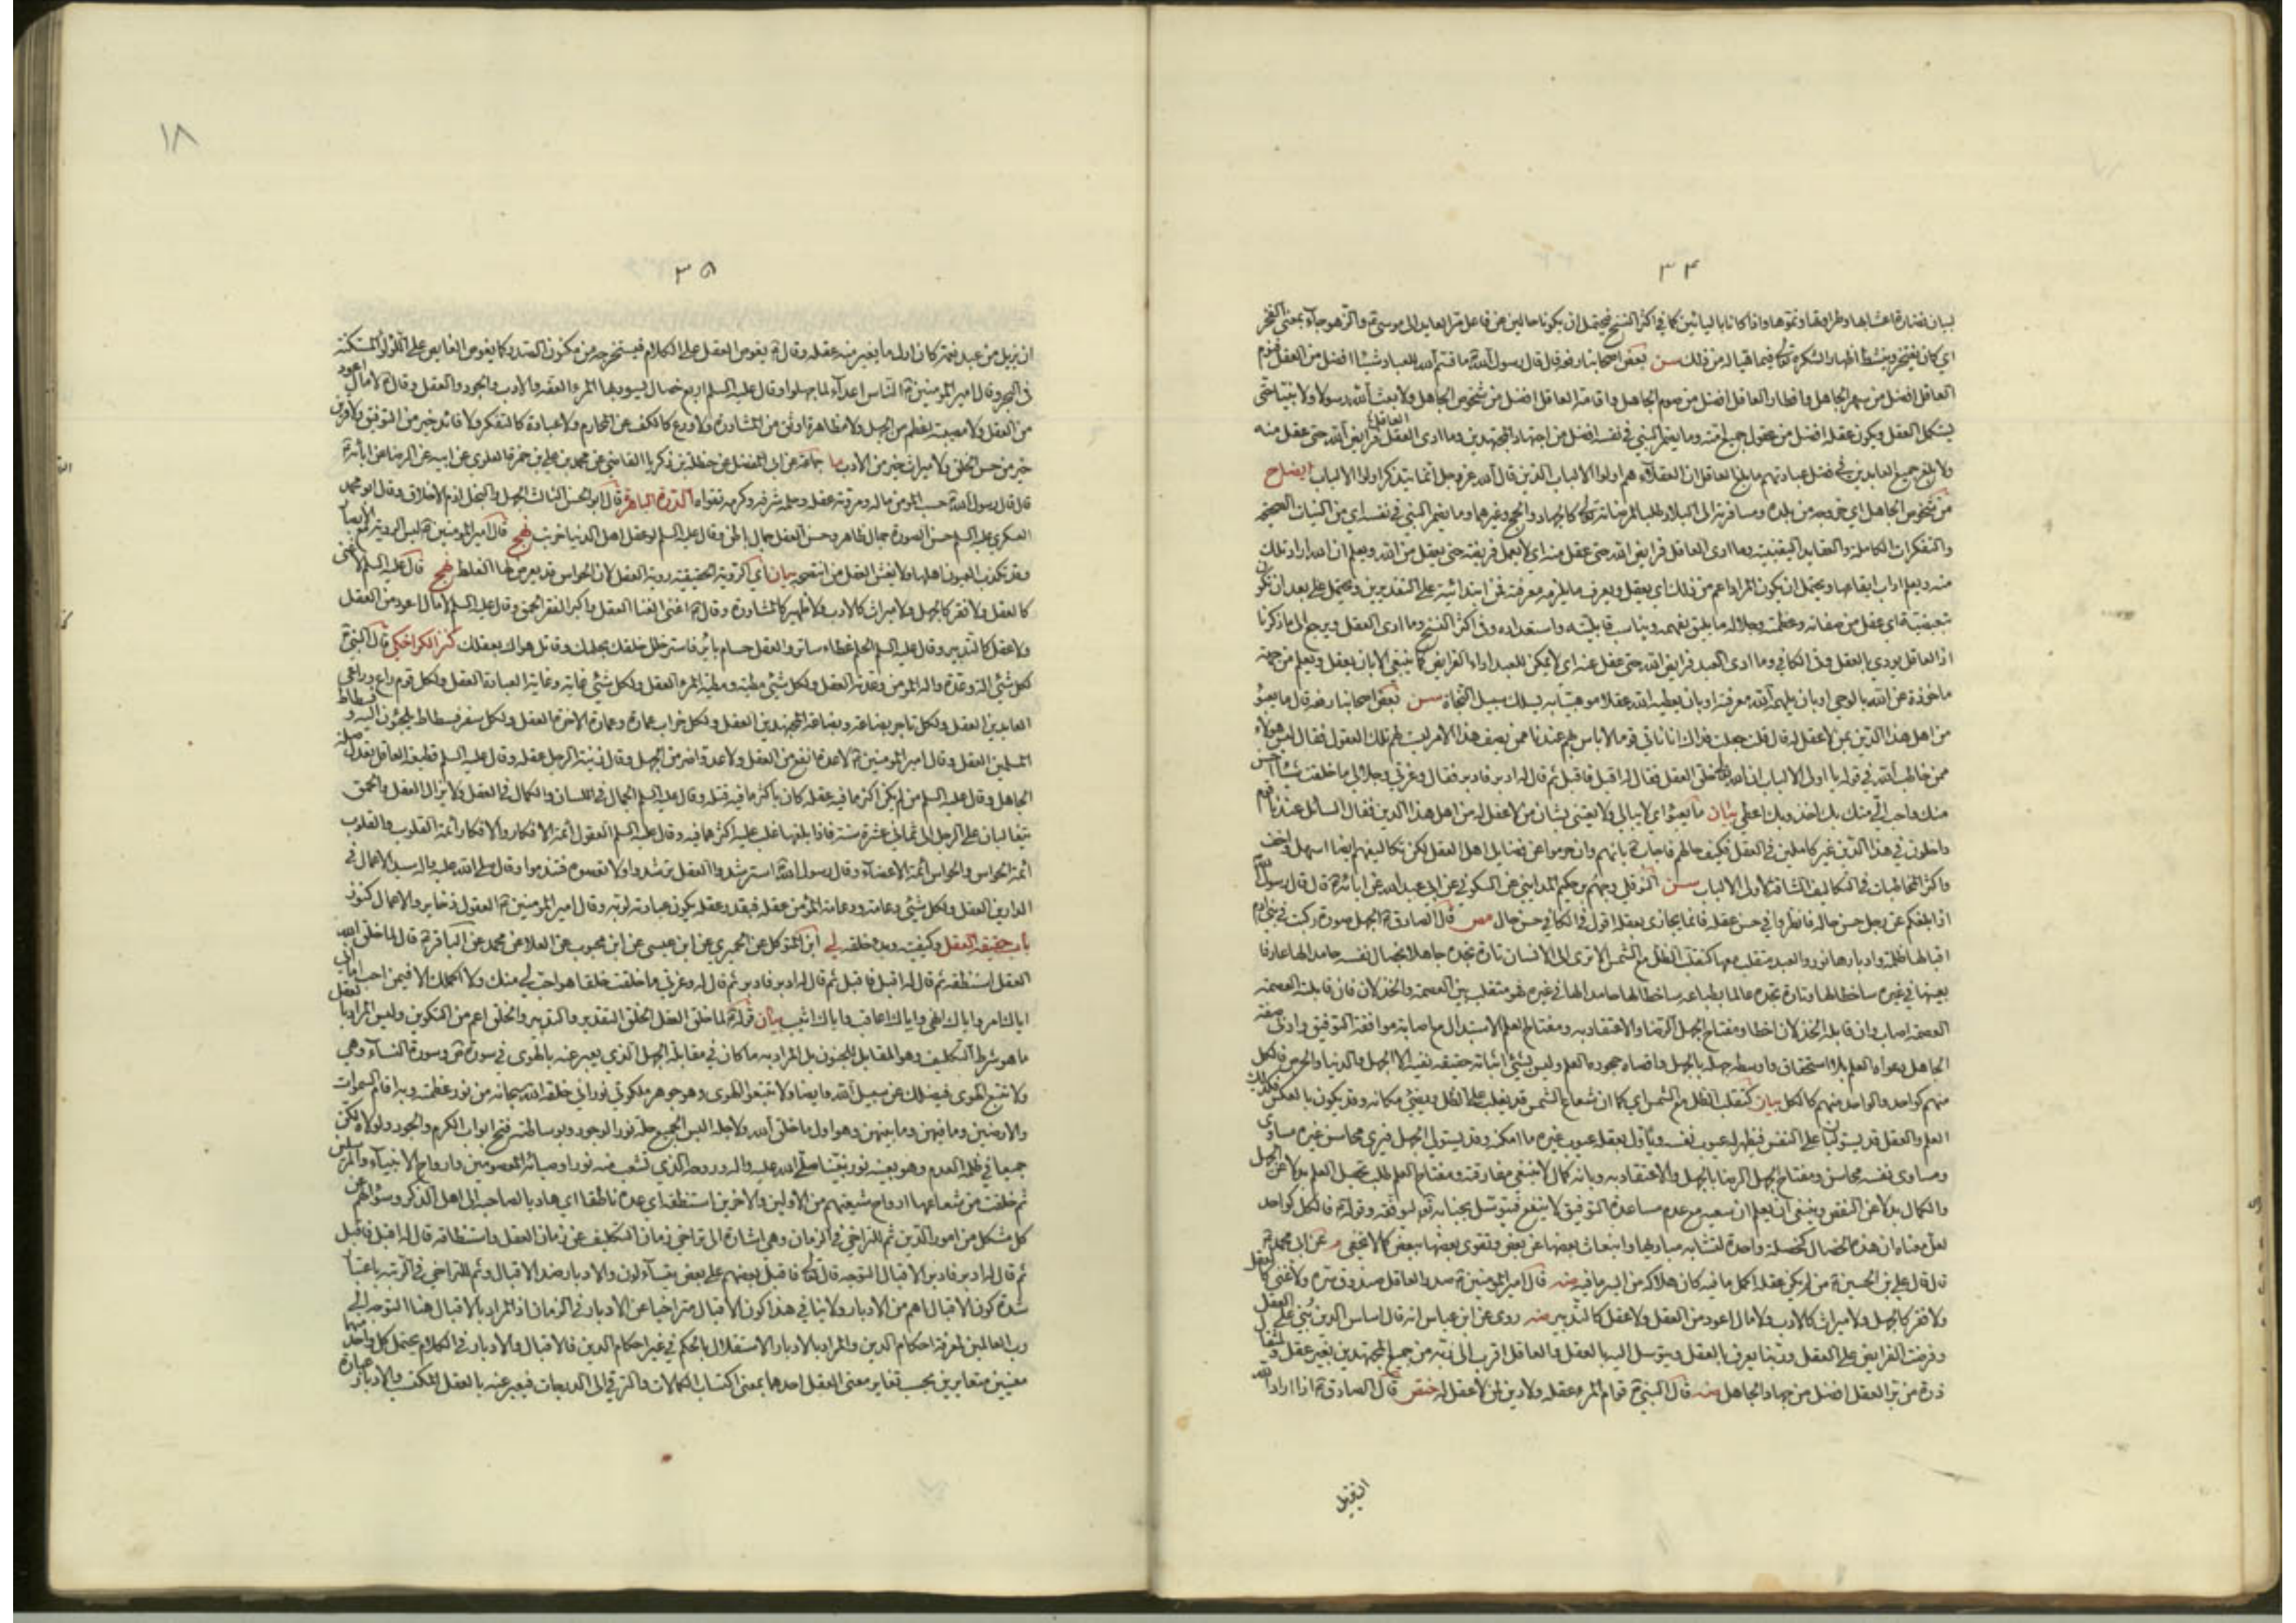 ٣٤
لبيان نضارة اعشابها وطراوتها ونموها واذا كانا باليائين كما في اكثر النسخ فيحتمل ان يكونا حالين عن فاعل العابد الى موسى ع والزهو جاء بمعنى الفخر
اي كان يفتخر وينشط اظهارا لشكره تعالى فيما هيأ له من ذلك سن بعض اصحابنا رفعه قال قال رسول الله ص ما قسم الله للعباد شيئا افضل من العقل فنوم
العاقل افضل من سهر الجاهل وافطار العاقل افضل من صوم الجاهل واقامة العاقل افضل من شخوص الجاهل ولا بعث الله رسولا ولا نبيا حتى
يستكمل العقل ويكون عقله افضل من عقول جميع امته وما يضمر النبي في نفسه افضل من اجتهاد المجتهدين وما ادى العقل العاقل فرايض الله حتى عقل منه
ولا بلغ جميع العابدين في فضل عبادتهم ما بلغ العاقل ان العقلاء هم اولوا الالباب الذين قال الله عز وجل انما يتذكر اولوا الالباب ايضاح
من شخوص الجاهل اي خروجه من بلده ومسافرته الى البلاد طلبا لمرضاته تعالى كالجهاد والحج وغيرهما وما يضمر النبي في نفسه اي من النيات الصحيحة
والتفكرات الكاملة والعقايد اليقينية وما ادى العاقل فرايض الله حتى عقل منه اي لا يعمل فريضة حتى يعقل من الله ويعلم ان الله اراد تلك
منه ويعلم اداب ايقاعها ويحتمل ان يكون المراد اعم من ذلك اي يعقل ويعرف ما يلزمه معرفته فمن ابتدائية على التقديرين ويحتمل على بعد ان تكون
تبعيضية اي عقل من صفاته وعظمته وجلاله ما يليق بفهمه ويناسب قابليته واستعداده وفي اكثر النسخ وما ادى العقل ويرجع الى ما ذكرنا
اذ العاقل يودي بالعقل وفي الكافي وما ادى العبد فرايض الله حتى عقل عنه اي لا يمكن للعبد اداء الفرايض كما ينبغي الا بان يعقل ويعلم من جهة
ماخوذة عن الله بالوحي او بان يلهمه الله معرفته او بان يعطيه الله عقلا موهبيا به يسلك سبيل النجاة سن بعض اصحابنا رفعه قال ما يعبؤ
من اهل هذا الدين بمن لا عقل له قال قلت جعلت فداك انا ناتي قوما لا باس بهم عندنا ممن يصف هذا الامر ليست لهم تلك العقول فقال ليس هؤلاء
ممن خاطب الله في قوله يا اولى الالباب ان الله خلق العقل فقال له اقبل فاقبل ثم قال له ادبر فادبر فقال وعزتي وجلالي ما خلقت شيئا احسن
منك واحب الي منك بك اخذ وبك اعطي بيان ما يعبؤ اي لا يبالي ولا يعتني بشان من لا عقل له من اهل هذا الدين فقال السائل عندنا قوم
داخلون في هذا الدين غير كاملين في العقل فكيف حالهم فاجاب ع بانهم وان حرموا عن فضايل اهل العقل لكن تكاليفهم ايضا اسهل واخف
واكثر المخاطبات في التكاليف الشاقة لاولى الالباب سن النوفلي وجهم بن حكيم المدايني عن السكوني عن ابي عبد الله عن ابائه ع قال قال رسول الله
اذا بلغكم عن رجل حسن حاله فانظروا في حسن عقله فانما يجازى بعقله اقول في الكافي حسن حال مص قال الصادق ع الجهل صورة ركبت في بني ادم
اقبالها ظلمة وادبارها نور والعبد متقلب معها كتقلب الظل مع الشمس الا ترى الى الانسان تارة تجده جاهلا بخصال نفسه حامدا لها عارفا
بعيبها في غيره ساخطا لها وتارة تجده عالما بطباعه ساخطا لها حامدا لها في غيره فهو متقلب بين العصمة والخذلان فان قابلته العصمة
العصمة اصاب وان قابله الخذلان اخطا ومفتاح الجهل الرضا والاعتقاد به ومفتاح العلم الاستبدال مع اصابة موافقة التوفيق وادنى صفة
الجاهل دعواه العلم بلا استحقاق واوسطه جهله بالجهل واقصاه جحوده العلم وليس شيئ اثباته حقيقة نفيه الا الجهل والدنيا والحرص فالكل
منهم كواحد والواحد منهم كالكل بيان كتقلب الظل مع الشمس اي كما ان شعاع الشمس قد يغلب على الظل ويضئ مكانه وقد يكون بالعكس فكذلك
العلم والعقل قد يستوليان على النفس فيظهر له عيوب نفسه وياول بعقله عيوب غيره ما امكنه وقد يستولي الجهل فيرى محاسن غيره مساوي
ومساوى نفسه محاسن ومفتاح الجهل الرضا بالجهل والاعتقاد به وبانه كمال لا ينبغي مفارقته ومفتاح العلم طلب تحصيل العلم بدلا عن الجهل
والكمال بدلا عن النقص وينبغي ان يعلم ان سعيه مع عدم مساعدة التوفيق لا ينفع فيتوسل بجنابه تعالى ليوفقه وقوله ع فالكل كواحد
لعل معناه ان هذه الخصال كخصلة واحدة لتشابه مباديها وانبعاث بعضها عن بعض وتقوى بعضها ببعض كما لا يخفى م عن ابي محمد ع
قال قال علي بن الحسين ع من لم يكن عقله اكمل ما فيه كان هلاكه من ايسر ما فيه ضه قال امير المؤمنين ع صدر العاقل صندوق سره ولا غنى كالعقل
ولا فقر كالجهل ولا ميراث كالادب ولا مال اعود من العقل ولا عقل كالتدبير ضه روى عن ابن عباس انه قال اساس الدين بني على العقل
وفرضت الفرايض على العقل وربنا يعرف بالعقل ويتوسل اليه بالعقل والعاقل اقرب الى ربه من جميع المجتهدين بغير عقل ولمثقال
ذرة من بر العقل افضل من جهاد الجاهل ضه قال النبي ص قوام المرء عقله ولا دين لمن لا عقل له ختص قال الصادق ع اذا اراد الله
ان يزيل
١٨
٣٥
ان يزيل من عبد نعمة كان اول ما يغير منه عقله وقال ع يغوص العقل على الكلام فيستخرجه من مكنون الصدر كما يغوص الغايص على اللؤلؤ المستكنة
في البحر وقال امير المؤمنين ع الناس اعداء لما جهلوا وقال عليه السلم اربع خصال يسود بها المرء العفة والادب والجود والعقل وقال ع لا مال اعود
من العقل ولا مصيبة اعظم من الجهل ولا مظاهرة اوثق من المشاورة ولا ورع كالكف عن المحارم ولا عبادة كالتفكر ولا قائد خير من التوفيق ولا قرين
خير من حسن الخلق ولا ميراث خير من الادب ما جماعة عن ابي المفضل عن حنظلة بن زكريا القاضي عن محمد بن علي بن حمزة العلوي عن ابيه عن الرضا عن ابائه ع
قال قال رسول الله ص حسب المؤمن ماله ومروته عقله وحلمه شرفه وكرمه تقواه الدرة الباهرة قال ابو الحسن الثالث الجهل والبخل اذم الاخلاق وقال ابو محمد
العسكري عليه السلم حسن الصورة جمال ظاهر وحسن العقل جمال باطن وقال عليه السلم لو عقل اهل الدنيا خربت نهج قال امير المؤمنين ع ليس الروية مع الابصار
وقد تكذب العيون اهلها ولا يغش العقل من انتصحه بيان اي الروية الحقيقية روية العقل لان الحواس قد يعرض لها الغلط نهج قال عليه السلم لا غنى
كالعقل ولا فقر كالجهل ولا ميراث كالادب ولا ظهير كالمشاورة وقال ع اغنى الغنا العقل واكبر الفقر الحمق وقال عليه السلم لا مال اعود من العقل
ولا عقل كالتدبير وقال عليه السلم الحلم غطاء ساتر والعقل حسام باتر فاستر خلل خلقك بحلمك وقاتل هواك بعقلك كنز الكراجكي قال النبي ص
لكل شئ الة وعدة والة المؤمن وعدته العقل ولكل شئ مطية ومطية المرء العقل ولكل شئ غاية وغاية العبادة العقل ولكل قوم راع وراعي
العابدين العقل ولكل تاجر بضاعة وبضاعة المجتهدين العقل ولكل خراب عمارة وعمارة الاخرة العقل ولكل سفر فسطاط يلجئون اليه وفسطاط
المسلمين العقل وقال امير المؤمنين ع لا عدة انفع من العقل ولا عدو اضر من الجهل وقال زينة الرجل عقله وقال عليه السلم قطيعة العاقل تعدل صلة
الجاهل وقال عليه السلم من لم يكن اكثر ما فيه عقله كان باكثر ما فيه قتله وقال عليه السلم الجمال في اللسان والكمال في العقل ولا يزال العقل والحمق
يتغالبان على الرجل الى ثماني عشرة سنة فاذا بلغها غلب عليه اكثرهما فيه وقال عليه السلم العقول ائمة الافكار والافكار ائمة القلوب والقلوب
ائمة الحواس والحواس ائمة الاعضاء وقال رسول الله ص استرشدوا العقل ترشدوا ولا تعصوه فتندموا وقال صلى الله عليه واله سيد الاعمال في
الدارين العقل ولكل شئ دعامة ودعامة المؤمن عقله فبقدر عقله يكون عبادته لربه وقال امير المؤمنين ع العقول ذخاير والاعمال كنوز
باب حقيقة العقل وكيفيته وبدو خلقه لي ابن المتوكل عن الحميري عن ابن عيسى عن ابن محبوب عن العلا عن محمد عن الباقر ع قال لما خلق الله
العقل استنطقه ثم قال له اقبل فاقبل ثم قال له ادبر فادبر ثم قال له وعزتي ما خلقت خلقا هو احب الي منك ولا اكملك الا فيمن احب اما اني
اياك امر واياك انهى واياك اعاقب واياك اثيب بيان قوله ع لما خلق العقل الخلق التقدير والتدبير والخلق اعم من التكوين وليس المراد بالعقل
ما هو شرط التكليف وهو المقابل للجنون بل المراد به ما كان في مقابلة الجهل الذي يعبر عنه بالهوى في سورة ص وسورة النساء وهي
ولا تتبع الهوى فيضلك عن سبيل الله وايضا ولا تتبعوا الهوى وهو جوهر ملكوتي نوراني خلقه الله سبحانه من نور عظمته وبه اقام السموات
والارضين وما فيهن وما بينهن وهو اول ما خلق الله ولاجله البس الجميع حلة نور الوجود وبوساطته فتح ابواب الكرم والجود ولولاه لكن
جميعا في ظلمة العدم وهو بعينه نور نبينا صلى الله عليه واله وروحه الذي تشعب منه نور اوصيائه المعصومين وارواح الانبياء والمرسلين
ثم خلقت من شعاعها ارواح شيعتهم من الاولين والاخرين استنطقه اي عده ناطقا اي هاديا لصاحبه الى اهل الذكر وسؤالهم عن
كل مشكل من امور الدين ثم للتراخي في الزمان وهي اشارة الى تراخي زمان التكليف عن زمان العقل واستنطاقه قال له اقبل فاقبل
ثم قال له ادبر فادبر الاقبال التوجه قال تعالى فاقبل بعضهم على بعض يتساءلون والادبار ضد الاقبال وثم للتراخي في الرتبة باعتبار
شدة كون الاقبال اهم من الادبار ولا ينافي هذا كون الاقبال متراخيا عن الادبار في الزمان اذ المراد بالاقبال هنا التوجه الى
رب العالمين لمعرفة احكام الدين والمراد بالادبار الاستقلال بالحكم في غير احكام الدين فالاقبال والادبار في الكلام يحتمل كل واحد منهما
معنيين متغايرين بحسب تغاير معنى العقل احدهما بمعنى اكتساب الكمالات والترقي الى الدرجات فيعبر عنه بالعقل المكتسب والادبار عبارة